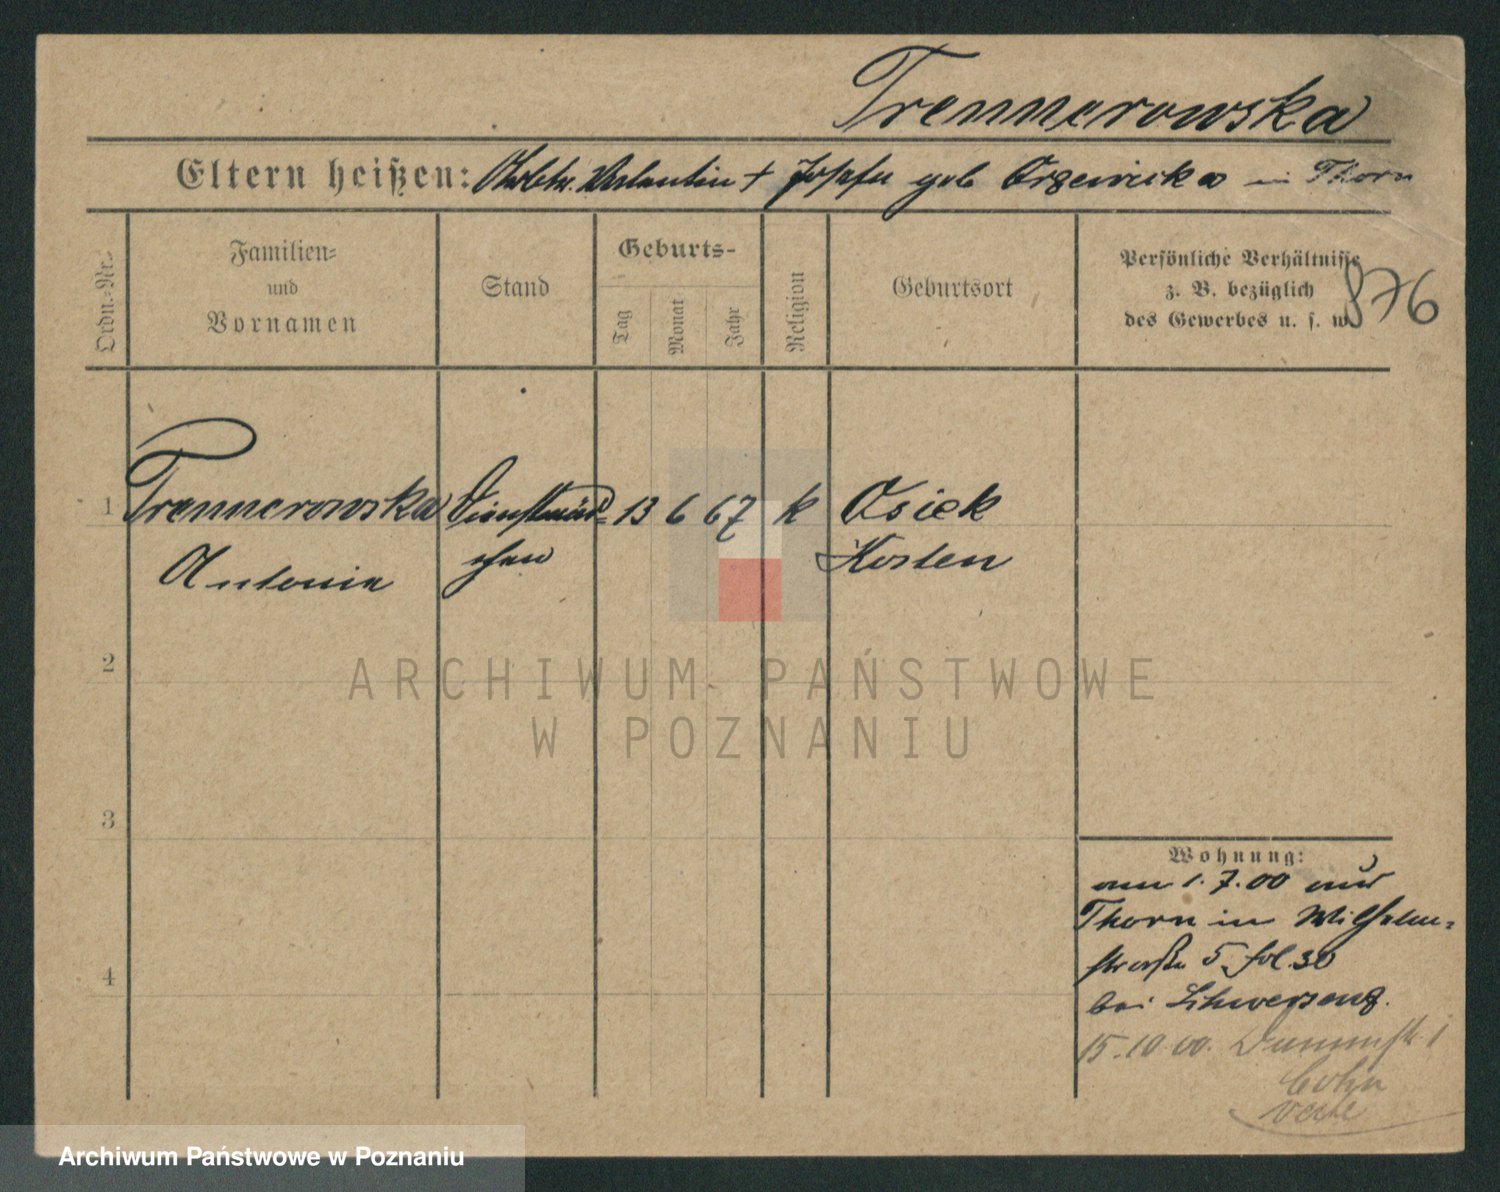 Trennerowska
Eltern heißen: Valentin + Josefa geb Orzewicka in Thorn
Ordn.=Nr.
Familien=
und
Vornamen
Stand
Geburts-
Tag
Monat
Jahr
Religion
Geburtsort
Persönliche Verhältnisse
z. B. bezüglich
des Gewerbes u. s. w.
876
1 Trennerowska Dienstmäd= 13 6 67 k Osiek
Antonie chen Kosten
2
3
4
Wohnung:
am 1.7.00 aus
Thorn in Wilhelm=
straße 5 fol. 30
bei Schwersenz.
15.10.00.
ARCHIWUM PAŃSTWOWE
W POZNANIU
Archiwum Państwowe w Poznaniu